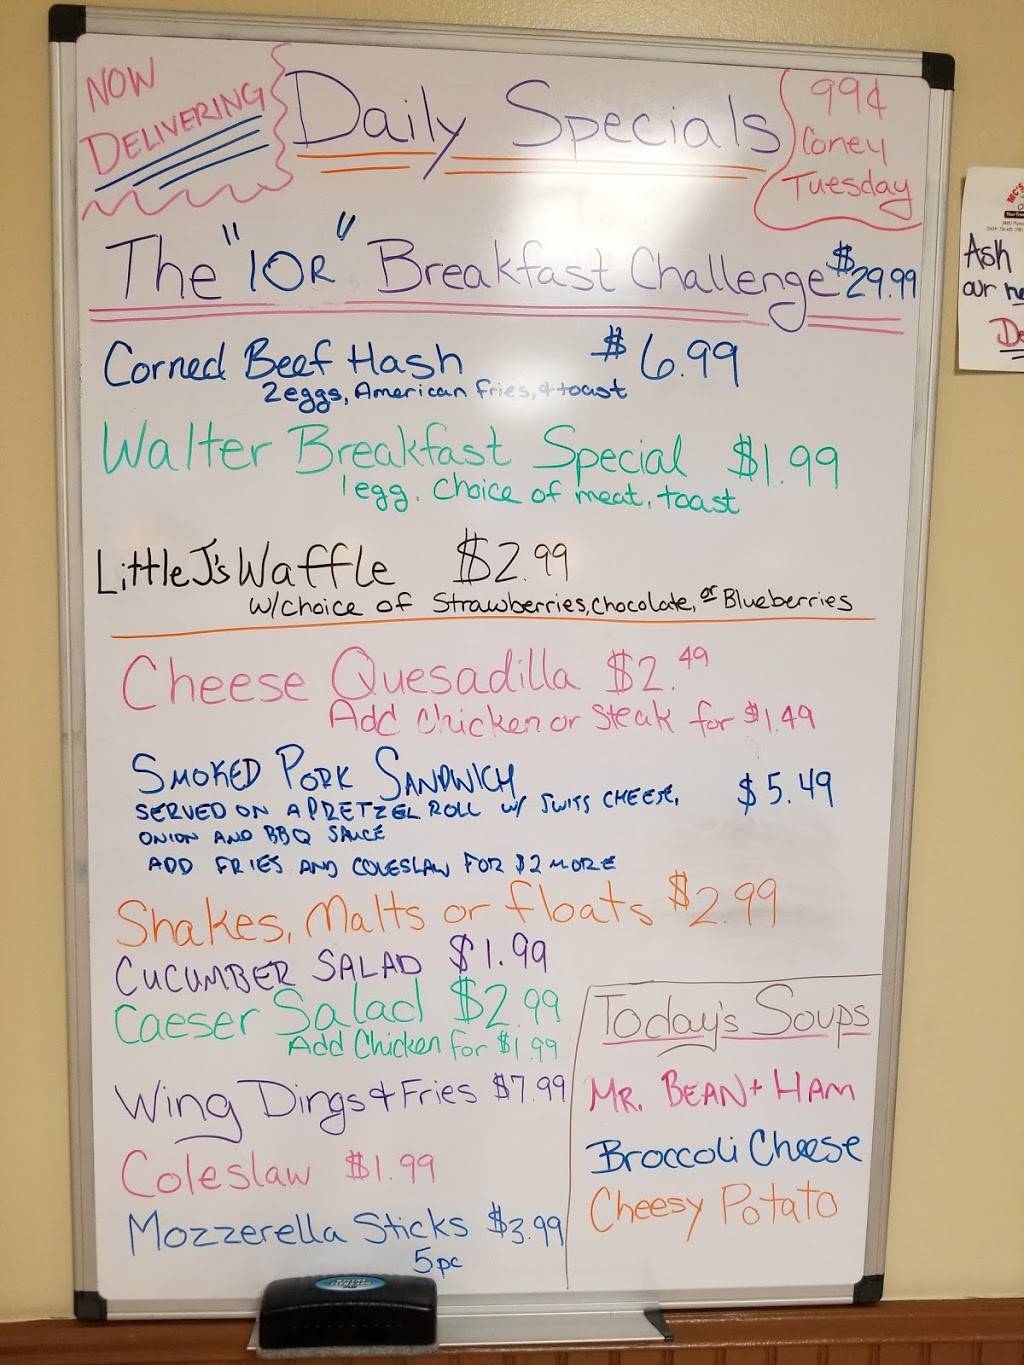 NOW
DELIVERING
Daily Specials
99¢
Coney
Tuesday
The "IOR" Breakfast Challenge $29.99
Corned Beef Hash $6.99
2 eggs, American fries, + toast
Walter Breakfast Special $1.99
1 egg. Choice of meat, toast
Little J's Waffle $2.99
w/choice of Strawberries, Chocolate, or Blueberries
Cheese Quesadilla $2.49
Add chicken or steak for $1.49
SMOKED PORK SANDWICH $5.49
SERVED ON A PRETZEL ROLL w/ SWISS CHEESE,
ONION AND BBQ SAUCE
ADD FRIES AND COLESLAW FOR $2 MORE
Shakes, Malts or floats $2.99
CUCUMBER SALAD $1.99
Caeser Salad $2.99
Add Chicken for $1.99
Wing Dings + Fries $7.99
Coleslaw $1.99
Mozzerella Sticks $3.99
5pc
Today's Soups
MR. BEAN + HAM
Broccoli Cheese
Cheesy Potato
Ask
our